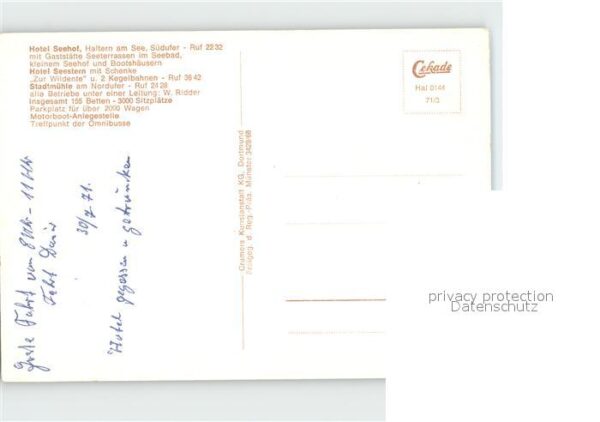 Hotel Seehof, Haltern am See, Südufer - Ruf 2232
mit Gaststätte Seeterrassen im Seebad,
kleinem Seehof und Bootshäusern
Hotel Seestern mit Schenke
„Zur Wildente" u. 2 Kegelbahnen - Ruf 3642
Stadtmühle am Nordufer - Ruf 2428
alle Betriebe unter einer Leitung: W. Ridder
Insgesamt 155 Betten - 3000 Sitzplätze
Parkplatz für über 2000 Wagen
Motorboot-Anlegestelle
Treffpunkt der Omnibusse
Cekade
Hal 0144
71/3
Große Fahrt von 8 Uhr - 11 Uhr
Fahrt
30/7. 71.
Hotel gegessen u getrunken
Cramers Kunstanstalt KG, Dortmund
Freigeg. d. Reg.-Präs. Münster 3428/68
privacy protection
Datenschutz